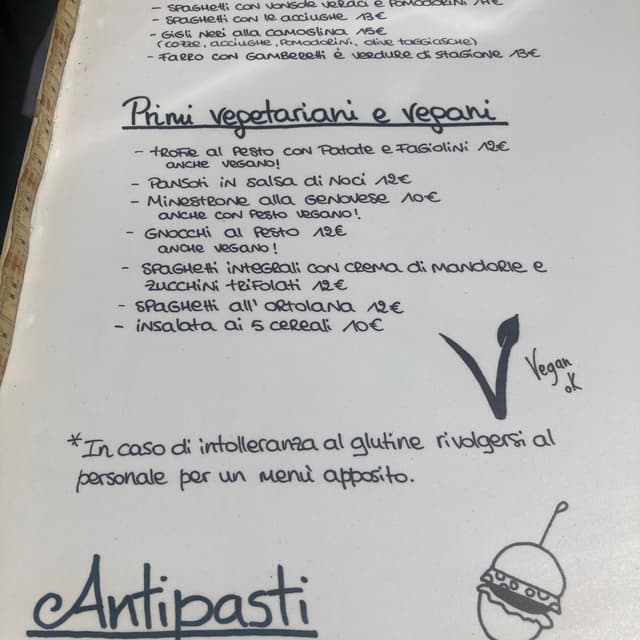 - SPAGHETTI CON VONGOLE VERACI E POMODORINI 14€
- SPAGHETTI CON LE ACCIUGHE 13€
- GIGLI NERI ALLA CAMOGLINA 15€
(COZZE, ACCIUGHE, POMODORINI, OLIVE TAGGIASCHE)
- FARRO CON GAMBERETTI É VERDURE DI STAGIONE 13€
Primi vegetariani e vegani
- TROFIE AL PESTO CON PATATE E FAGIOLINI 12€
ANCHE VEGANO!
- PANSOTI IN SALSA DI NOCI 12€
- MINESTRONE ALLA GENOVESE 10€
ANCHE CON PESTO VEGANO!
- GNOCCHI AL PESTO 12€
ANCHE VEGANO!
- SPAGHETTI INTEGRALI CON CREMA DI MANDORLE E
ZUCCHINI TRIFOLATI 12€
- SPAGHETTI ALL' ORTOLANA 12€
- INSALATA AI 5 CEREALI 10€
V Vegan
OK
*In caso di intolleranza al glutine rivolgersi al
personale per un menù apposito.
Antipasti